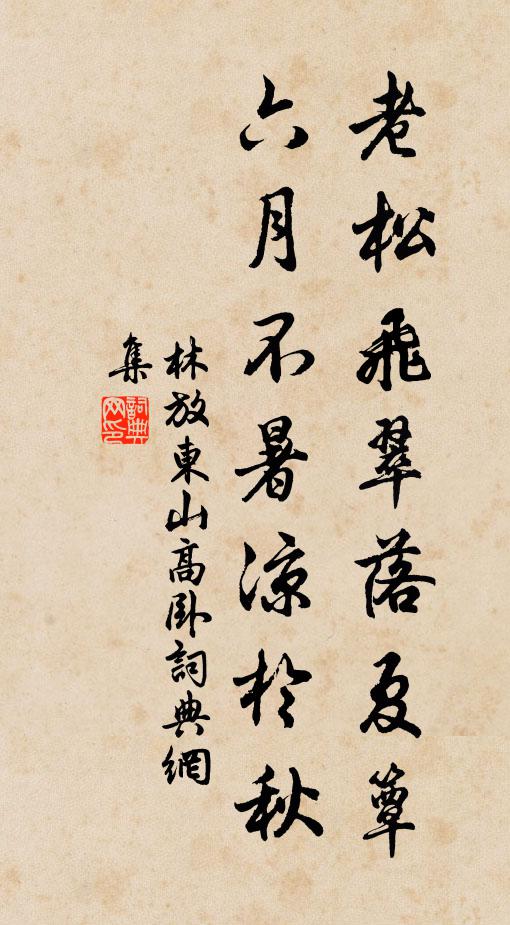 老松飛翠落夏簟
六月不暑涼於秋
林放東山高卧詞典網
集
詞典網印